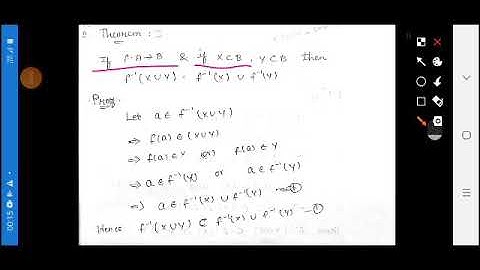 Theorem: I
If f: A → B & if X ⊂ B, Y ⊂ B then
f⁻¹(X ∪ Y) = f⁻¹(X) ∪ f⁻¹(Y)
Proof
Let a ∈ f⁻¹(X ∪ Y)
⇒ f(a) ∈ (X ∪ Y)
⇒ f(a) ∈ X (or) f(a) ∈ Y
⇒ a ∈ f⁻¹(X) or a ∈ f⁻¹(Y)
⇒ a ∈ f⁻¹(X) ∪ f⁻¹(Y) —①
Hence f⁻¹(X ∪ Y) ⊂ f⁻¹(X) ∪ f⁻¹(Y) —①
00:15